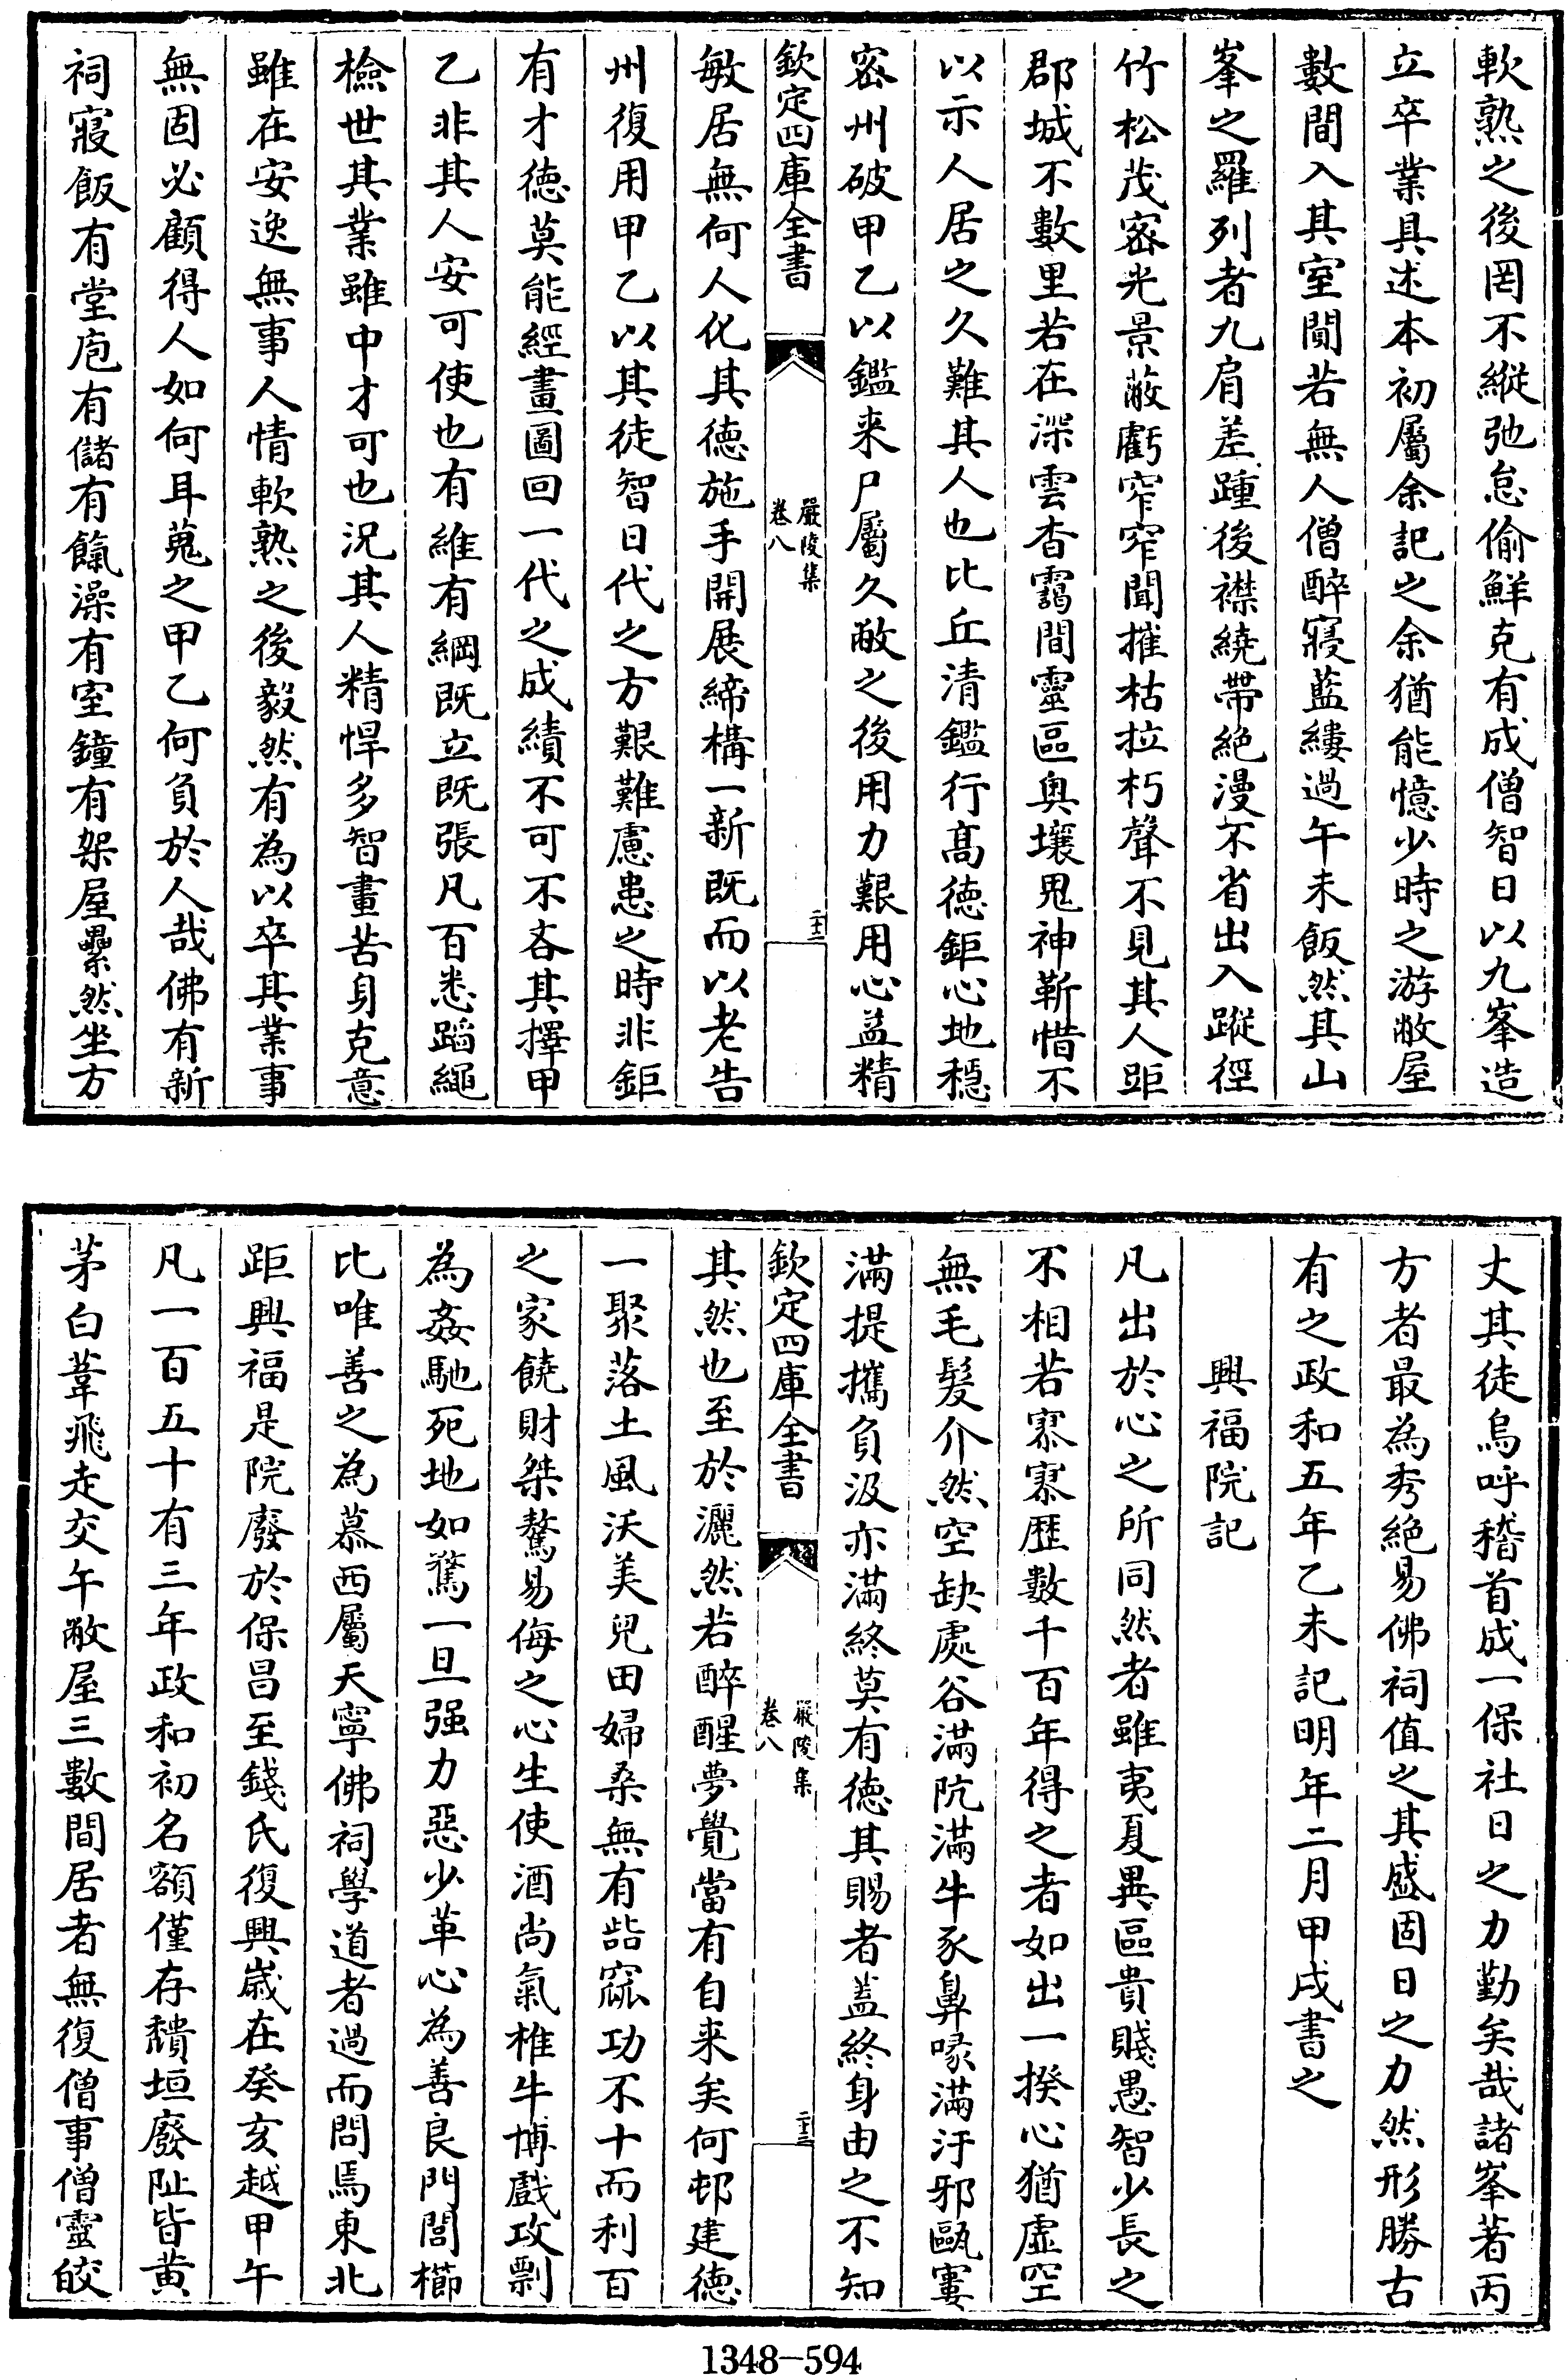 軟熟之後罔不縱弛怠偷鮮克有成僧智日以九峯造
立卒業具述本初屬余記之余猶能憶少時之游敝屋
數間入其室闃若無人僧醉寢藍縷過午未飯然其山
峯之羅列者九肩差踵後襟繞帶絶漫不省出入蹤徑
竹松茂宻光景蔽虧窄窄聞摧枯拉朽聲不見其人距
郡城不數里若在深雲杳靄間靈區奥壤鬼神靳惜不
以示人居之久難其人也比丘清鑑行髙徳鉅心地穩
宻州破甲乙以鑑来尸屬久敝之後用力艱用心益精
欽定四庫全書
嚴陵集
卷八
二十二
敏居無何人化其徳施手開展締構一新既而以老告
州復用甲乙以其徒智日代之方艱難慮患之時非鉅
有才徳莫能經畫圖回一代之成績不可不吝其擇甲
乙非其人安可使也有維有綱既立既張凡百悉蹈繩
檢世其業雖中才可也況其人精悍多智畫苦身克意
雖在安逸無事人情軟熟之後毅然有為以卒其業事
無固必顧得人如何耳蒐之甲乙何負於人哉佛有新
祠寢飯有堂庖有儲有餼澡有室鐘有架屋纍然坐方
丈其徒烏呼稽首成一保社日之力勤矣哉諸峯著丙
方者最為秀絶易佛祠值之其盛固日之力然形勝古
有之政和五年乙未記明年二月甲戌書之
興福院記
凡出於心之所同然者雖夷夏異區貴賤愚智少長之
不相若寥寥歴數千百年得之者如出一揆心猶虚空
無毛髮介然空缺處谷滿阬滿牛豕鼻喙滿汙邪甌窶
滿提攜負汲亦滿終莫有徳其賜者蓋終身由之不知
欽定四庫全書
嚴陵集
卷八
二十三
其然也至於灑然若醉醒夢覺當有自来矣何邨建徳
一聚落土風沃美兒田婦桑無有呰窳功不十而利百
之家饒財桀驁易侮之心生使酒尚氣椎牛博戲攻剽
為姦馳死地如驚一旦强力惡少革心為善良門閭櫛
比唯善之為慕西屬天寧佛祠學道者過而問焉東北
距興福是院廢於保昌至錢氏復興嵗在癸亥越甲午
凡一百五十有三年政和初名額僅存穨垣廢阯皆黄
茅白葦飛走交午敝屋三數間居者無復僧事僧靈皎
1348-594